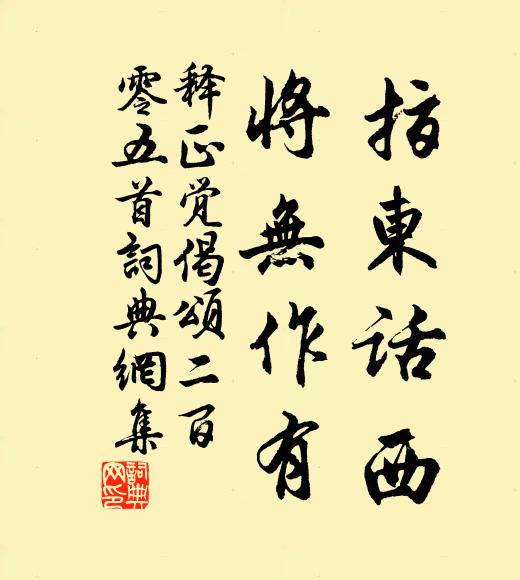 指東話西
將無作有
释正觉偈頌二百
零五首詞典網集
詞典網印